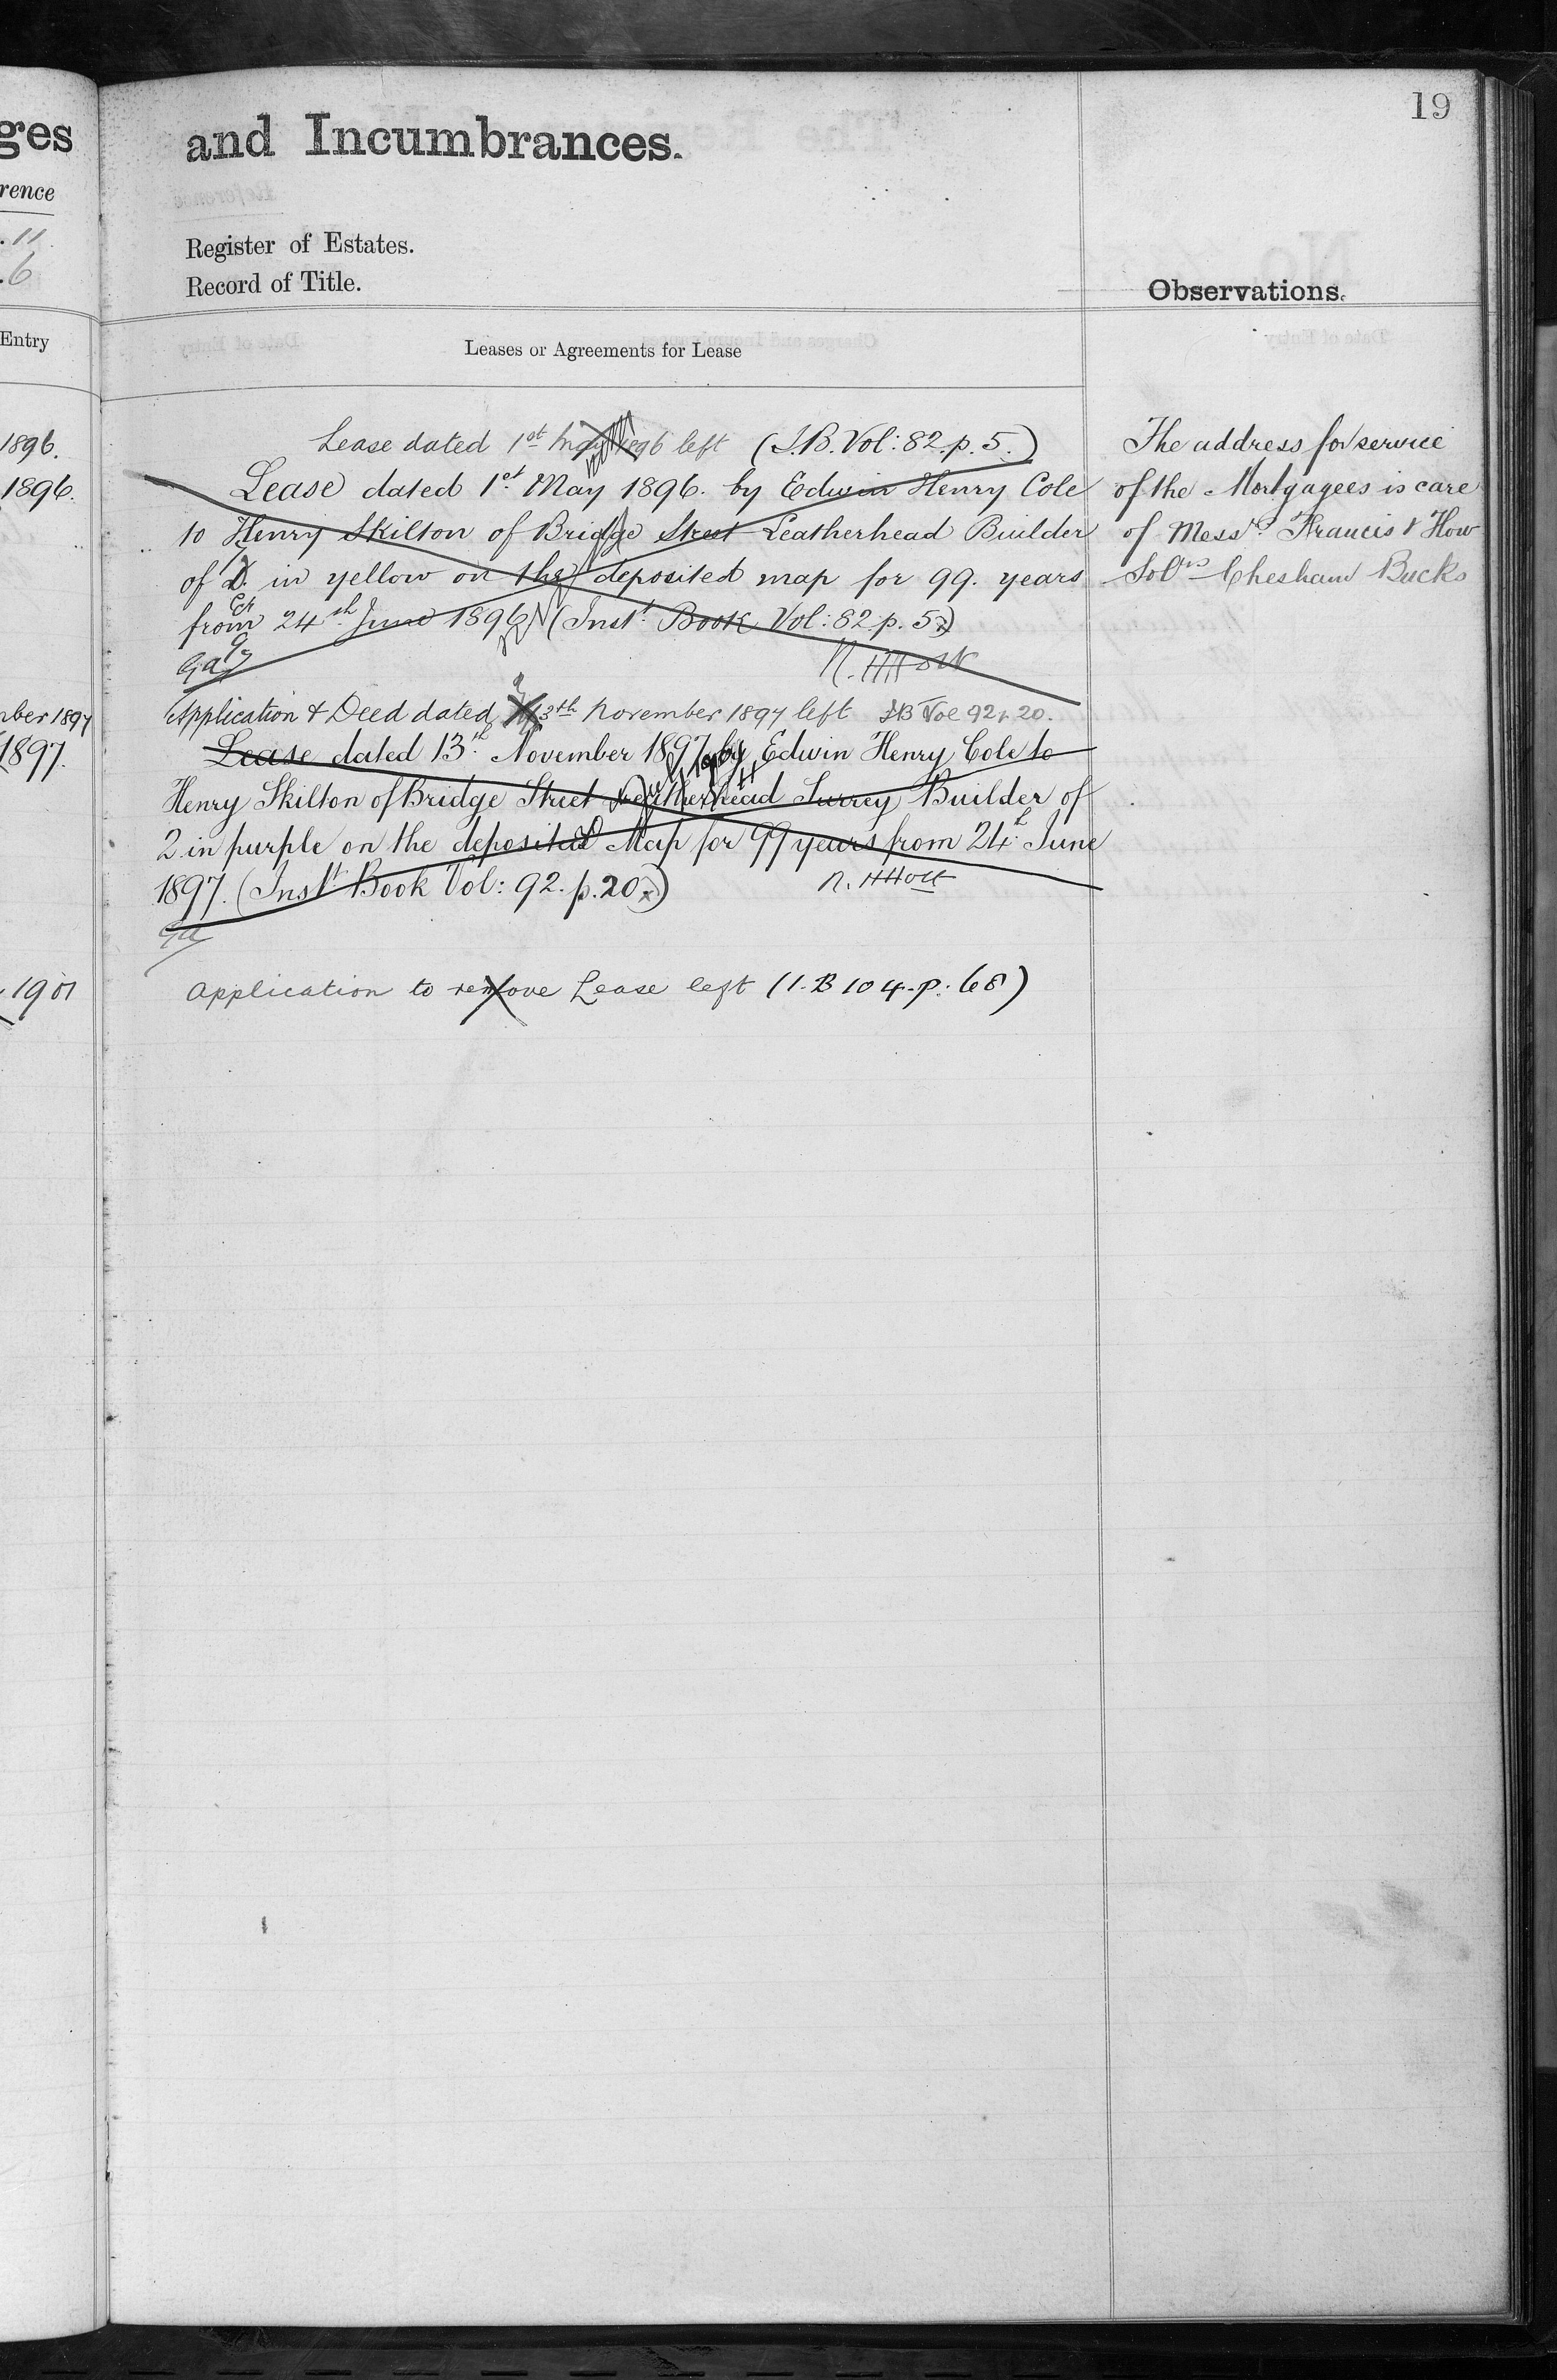 ges
rence
. 11
. 6
Entry
1896.
1896.
ber 1897
1897.
1901
19
and Incumbrances.
Register of Estates.
Record of Title.
Leases or Agreements for Lease
Lease dated 1st May 1896 left (I.B. Vol: 82. p. 5.)
Lease dated 1st May 1896. by Edwin Henry Cole
to Henry Skilton of Bridge Street Leatherhead Builder
of D. in yellow on the deposited map for 99. years
from 24th June 1896 (Inst. Book Vol: 82. p. 5.)
Application & Deed dated 13th November 1897 left IB Vol 92 p 20.
Lease dated 13th November 1897 by Edwin Henry Cole to
Henry Skilton of Bridge Street Leatherhead Surrey Builder of
2 in purple on the deposited Map for 99 years from 24th June
1897. (Inst Book Vol: 92. p. 20.)
R. H Holt
Application to remove Lease left (I.B 104. p. 68)
Observations.
The address for service
of the Mortgagees is care
of Messrs Francis & How
Solrs Chesham Bucks